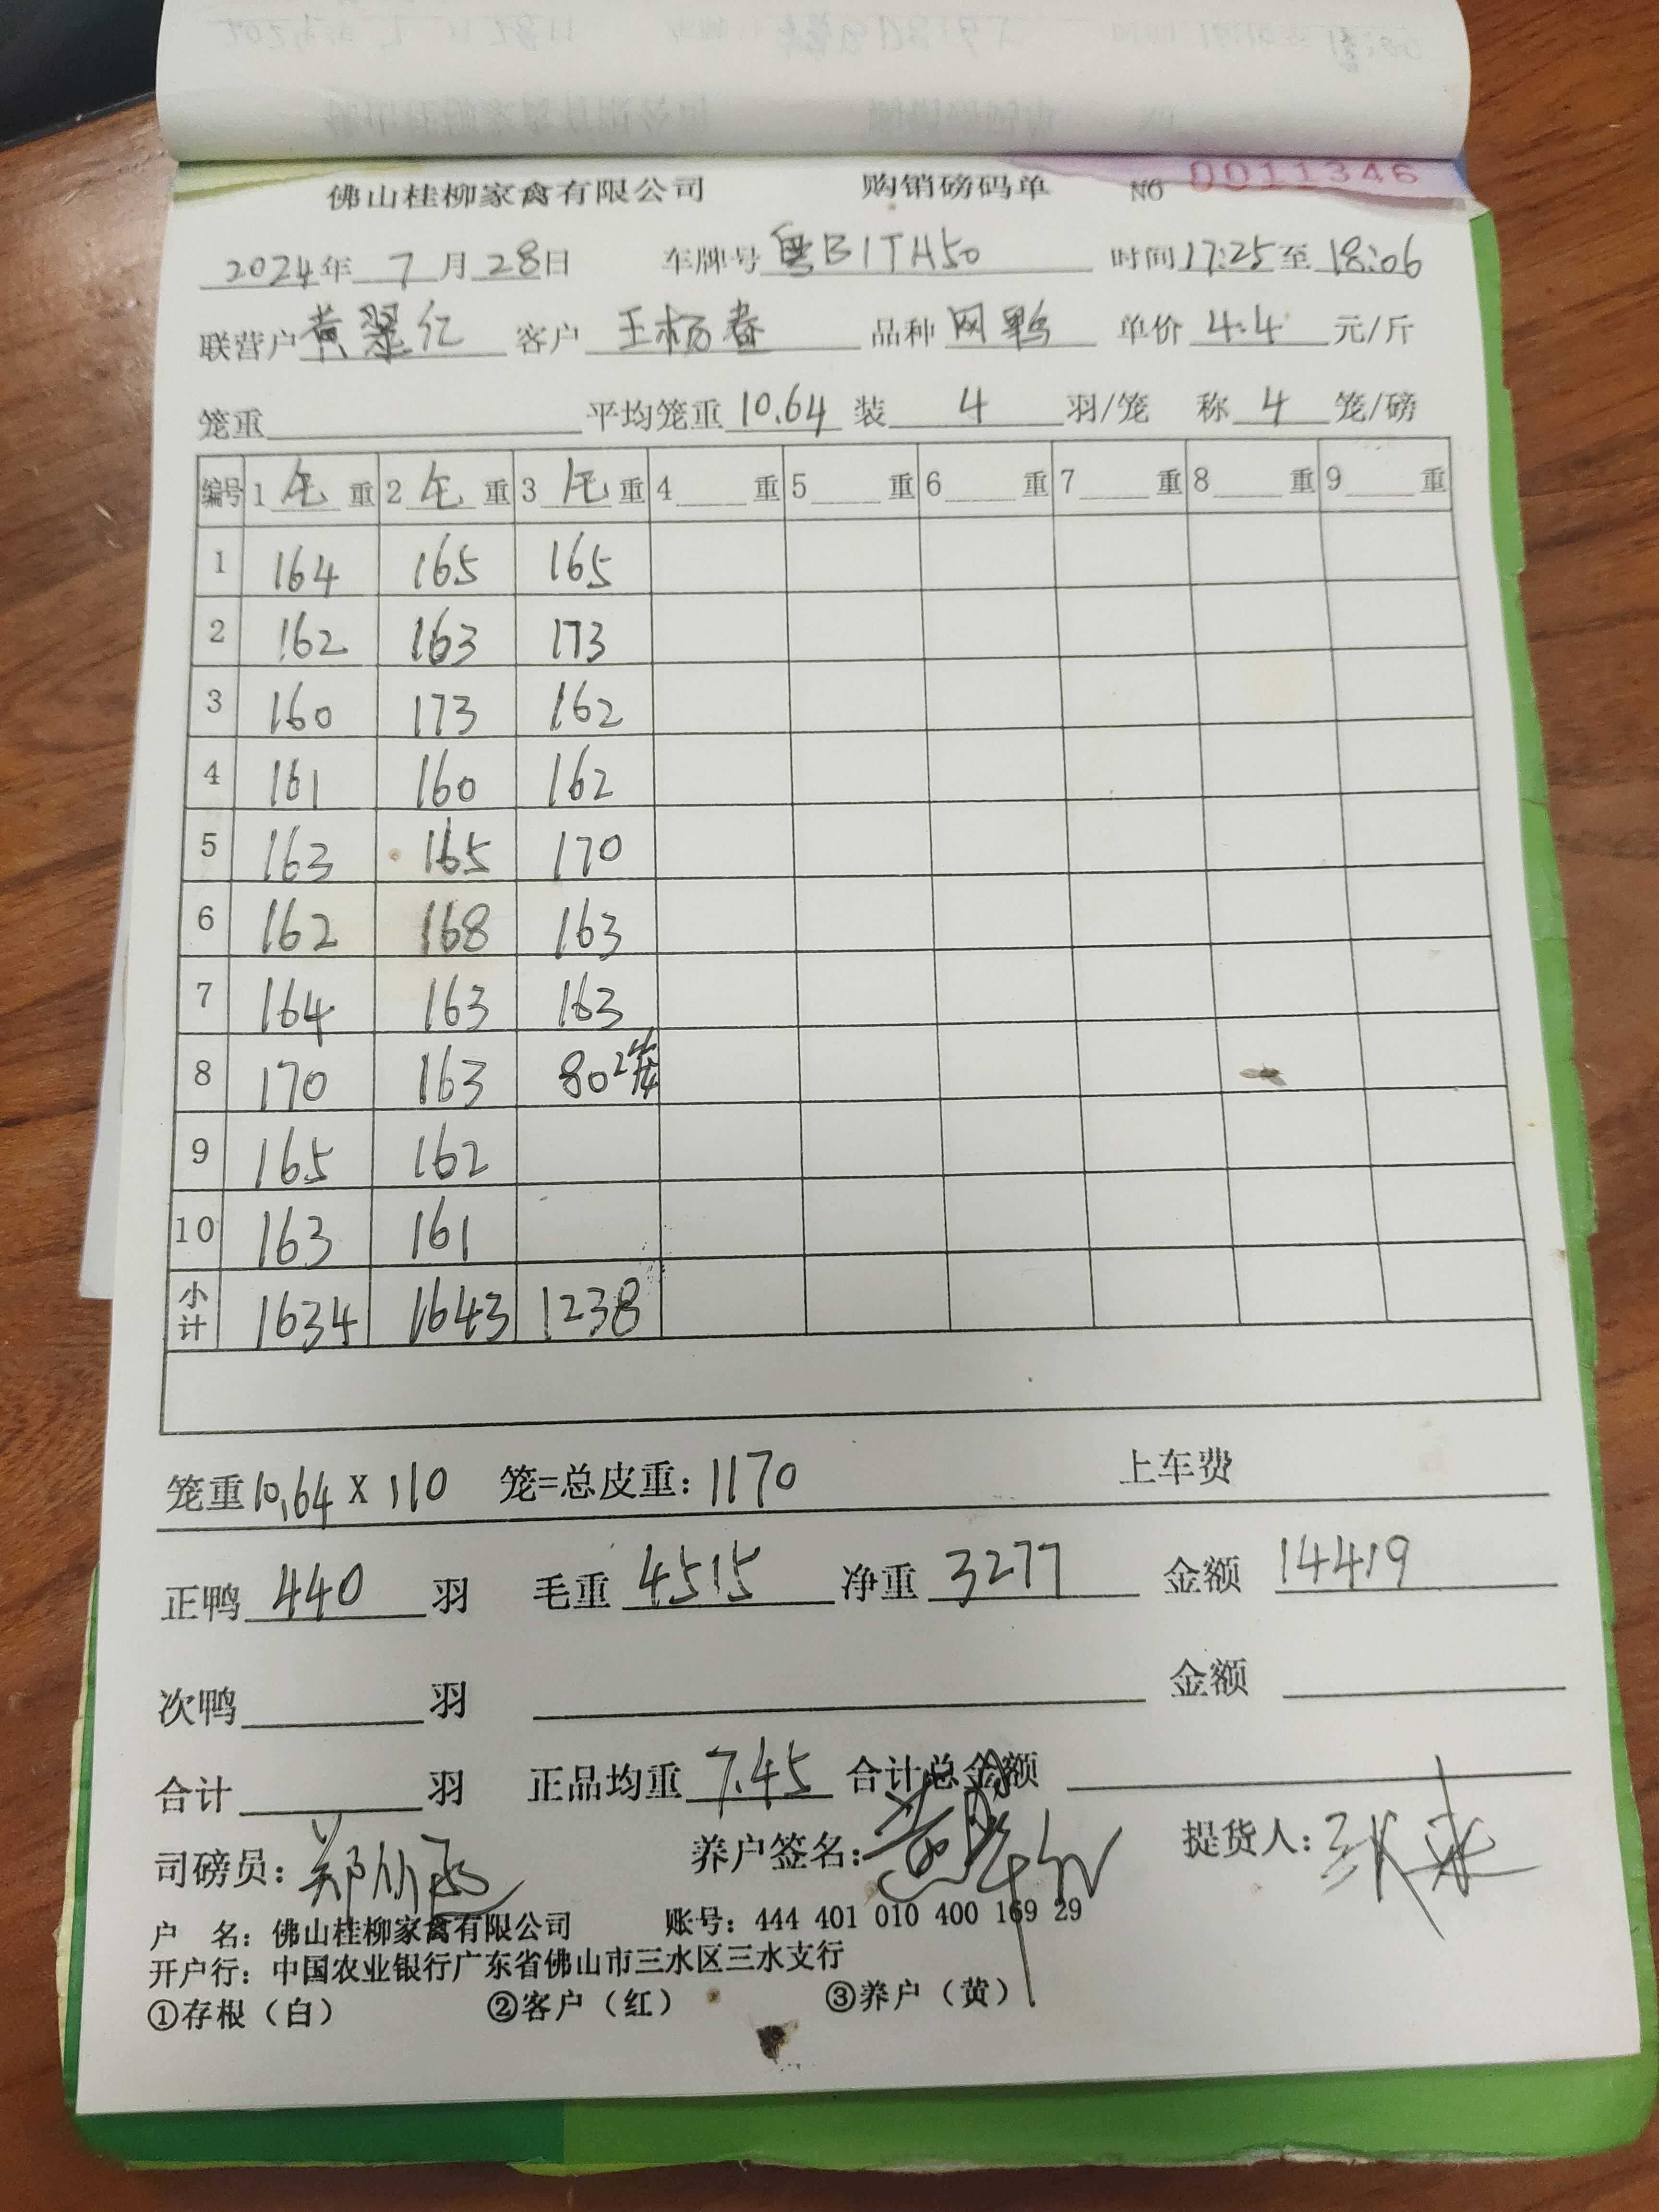 佛山桂柳家禽有限公司 购销磅码单 NO 0011346
2024年 7月28日 车牌号 粤B1TH50 时间17:25至18:06
联营户 黄翠红 客户 王杨春 品种 网鸭 单价 4.4 元/斤
笼重 平均笼重 10.64 装 4 羽/笼 称 4 笼/磅
编号 1毛重 2毛重 3毛重 4 重 5 重 6 重 7 重 8 重 9 重
1 164 165 165
2 162 163 173
3 160 173 162
4 161 160 162
5 163 165 170
6 162 168 163
7 164 163 163
8 170 163 80 2笼
9 165 162
10 163 161
小计 1634 1643 1238
笼重10.64 X 110 笼=总皮重: 1170 上车费
正鸭 440 羽 毛重 4515 净重 3277 金额 14419
次鸭 羽 金额
合计 羽 正品均重 7.45 合计总金额
司磅员: 养户签名: 提货人:
户 名: 佛山桂柳家禽有限公司 账号: 444 401 010 400 169 29
开户行: 中国农业银行广东省佛山市三水区三水支行
①存根（白） ②客户（红） ③养户（黄）